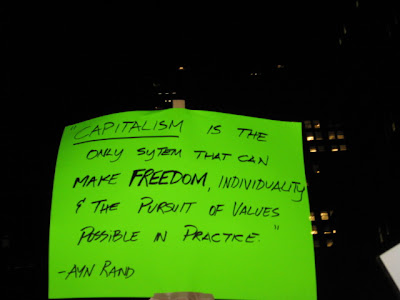 "CAPITALISM IS THE
ONLY SYTEM THAT CAN
MAKE FREEDOM, INDIVIDUALITY
& THE PURSUIT OF VALUES
POSSIBLE IN PRACTICE."
-AYN RAND